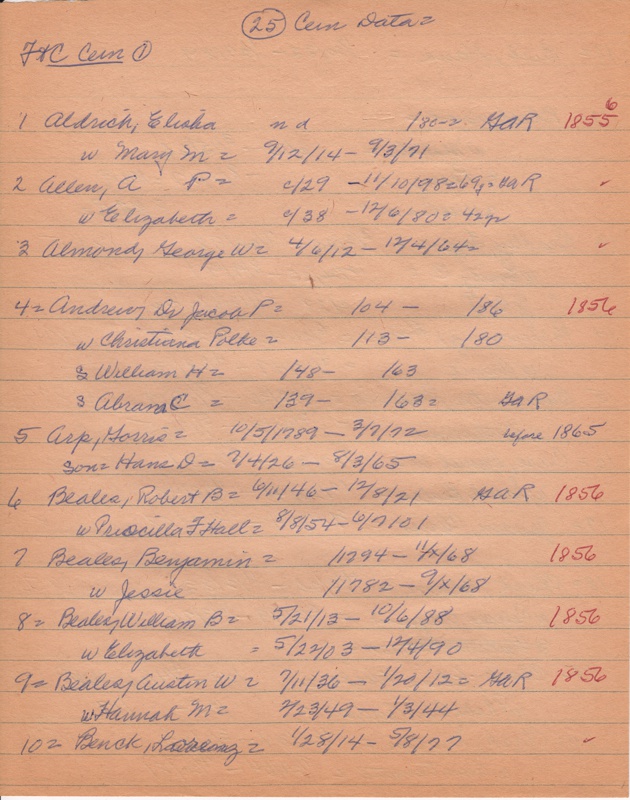 25 Cem Data =
F & C Cem 1
1 Aldrich, Elisha n d /80-2. GAR 1855 6
w Mary M = 9/12/14 - 9/3/71
2 Allen, A P = c/29 - 11/10/98 = 69y = GaR ✓
w Elizabeth = c/38 - 12/6/80 = 42yr
3 Almond, George W = 4/6/12 - 12/4/64 = ✓
4 = Andrew, Dr Jacob P = /04 - /86 1856
w Christiana Polke = /13 - /80
S William H = /48 - /63
S Abram C = /39 - /63 = GaR
5 Arp, Gorris = 10/5/1789 - 3/7/72 before 1865
Son = Hans D = 7/4/26 - 8/3/65
6 Beales, Robert B = 6/11/46 - 12/8/21 GAR 1856
w Priscilla F Hall = 8/8/54 - 6/7/01
7 Beales, Benjamin = /1794 - 11/x/68 1856
w Jessie /1782 - 9/x/68
8 = Beales, William B = 5/21/13 - 10/6/88 1856
w Elizabeth = 5/22/03 - 12/4/90
9 = Beales, Austin W = 7/11/36 - 1/20/12 = GAR 1856
w Hannah M = 2/23/49 - 1/3/44
10 = Benck, = 1/28/14 - 5/8/77 ✓